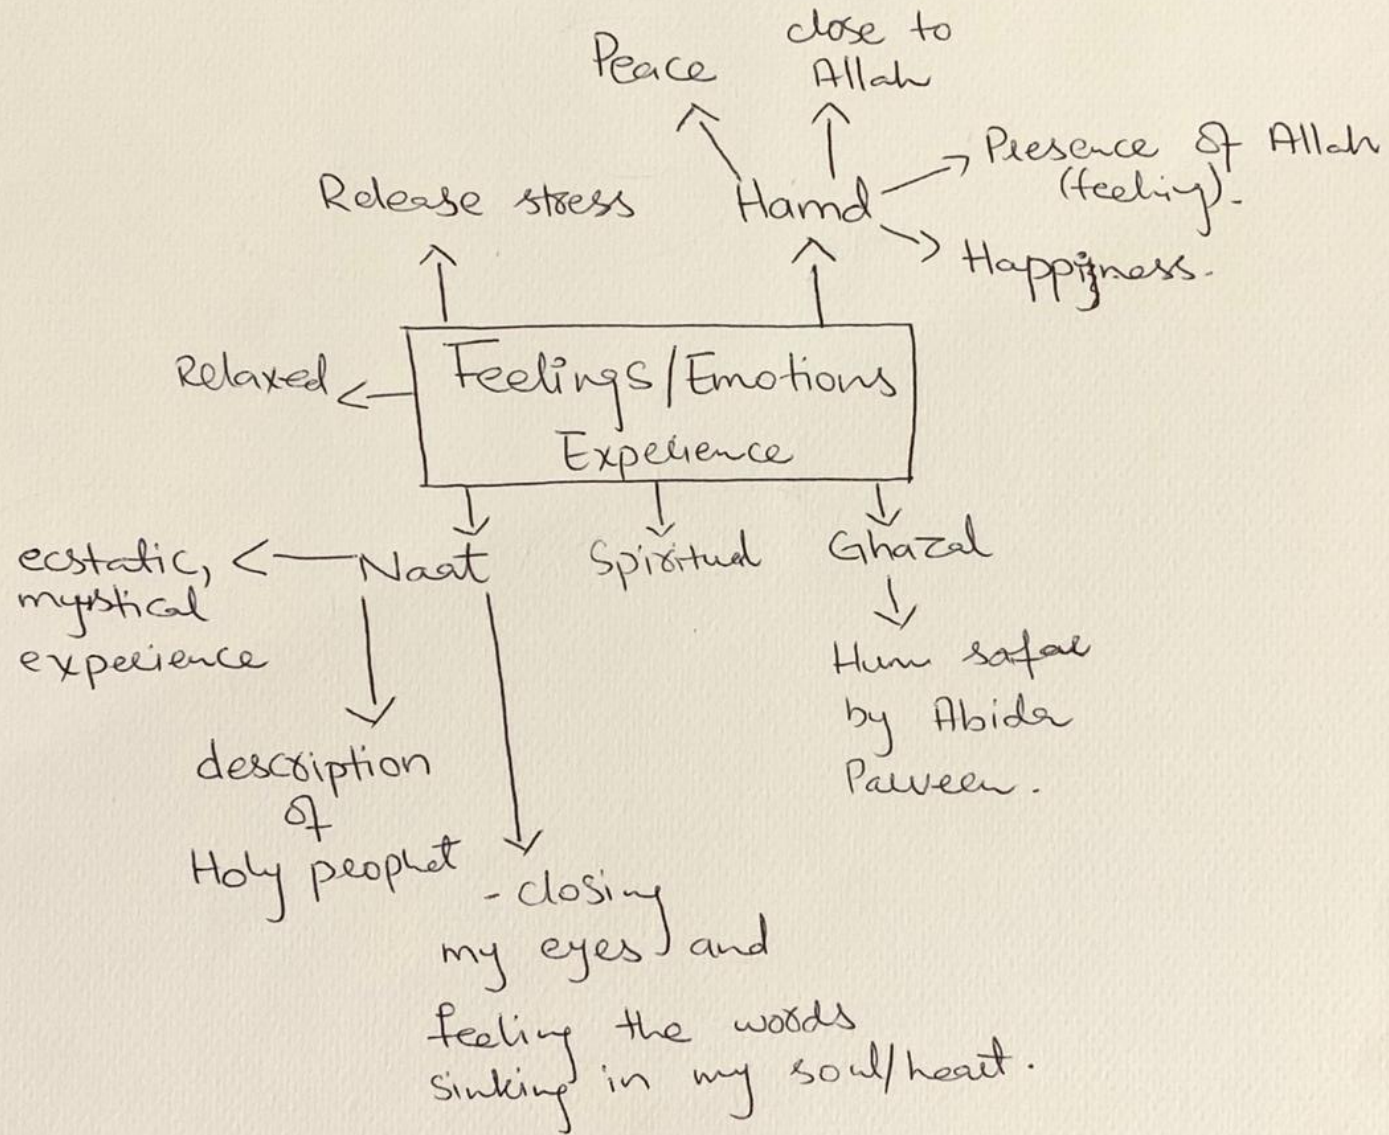 Peace
close to
Allah
Presence of Allah
(feeling).
Release stress
Hamd
Happiness.
Relaxed
Feelings/Emotions
Experience
ecstatic,
mystical
experience
Naat
Spiritual
Ghazal
Hum safar
by Abida
Parveen.
description
of
Holy prophet
- closing
my eyes and
feeling the words
sinking in my soul/heart.